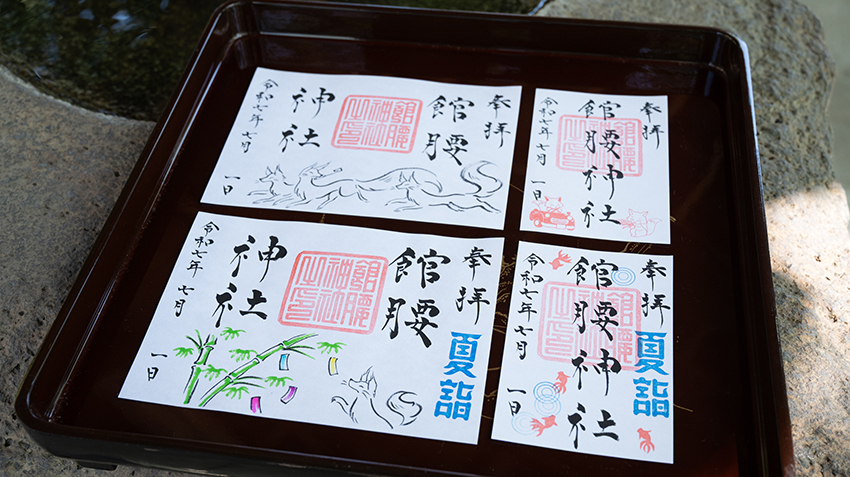 奉拝
館腰
神社
館腰
神社
之印
令和七年 七月 一日
奉拝
館腰神社
館腰
神社
之印
令和七年 七月 一日
奉拝
夏詣
館腰
神社
館腰
神社
之印
令和七年 七月 一日
奉拝
夏詣
館腰神社
館腰
神社
之印
令和七年 七月 一日